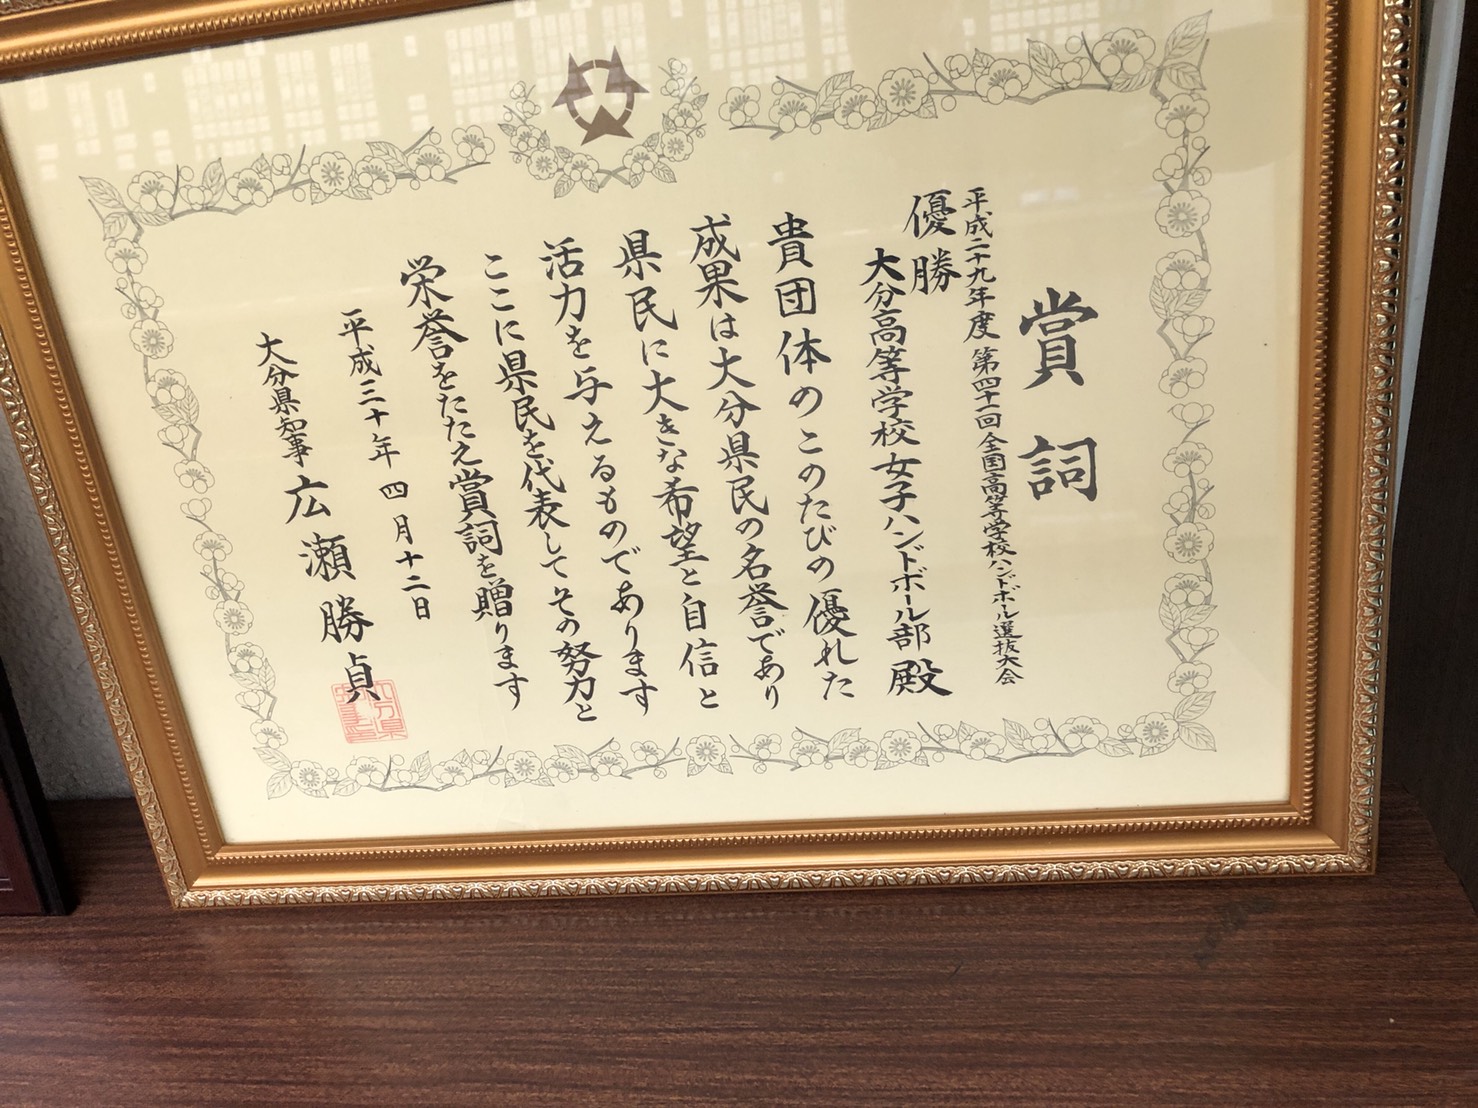 賞詞
平成二十九年度 第四十一回 全国高等学校ハンドボール選抜大会
優勝
大分高等学校女子ハンドボール部 殿
貴団体のこのたびの優れた
成果は大分県民の名誉であり
県民に大きな希望と自信と
活力を与えるものであります
ここに県民を代表してその努力と
栄誉をたたえ賞詞を贈ります
平成三十年四月十二日
大分県知事 広瀬勝貞